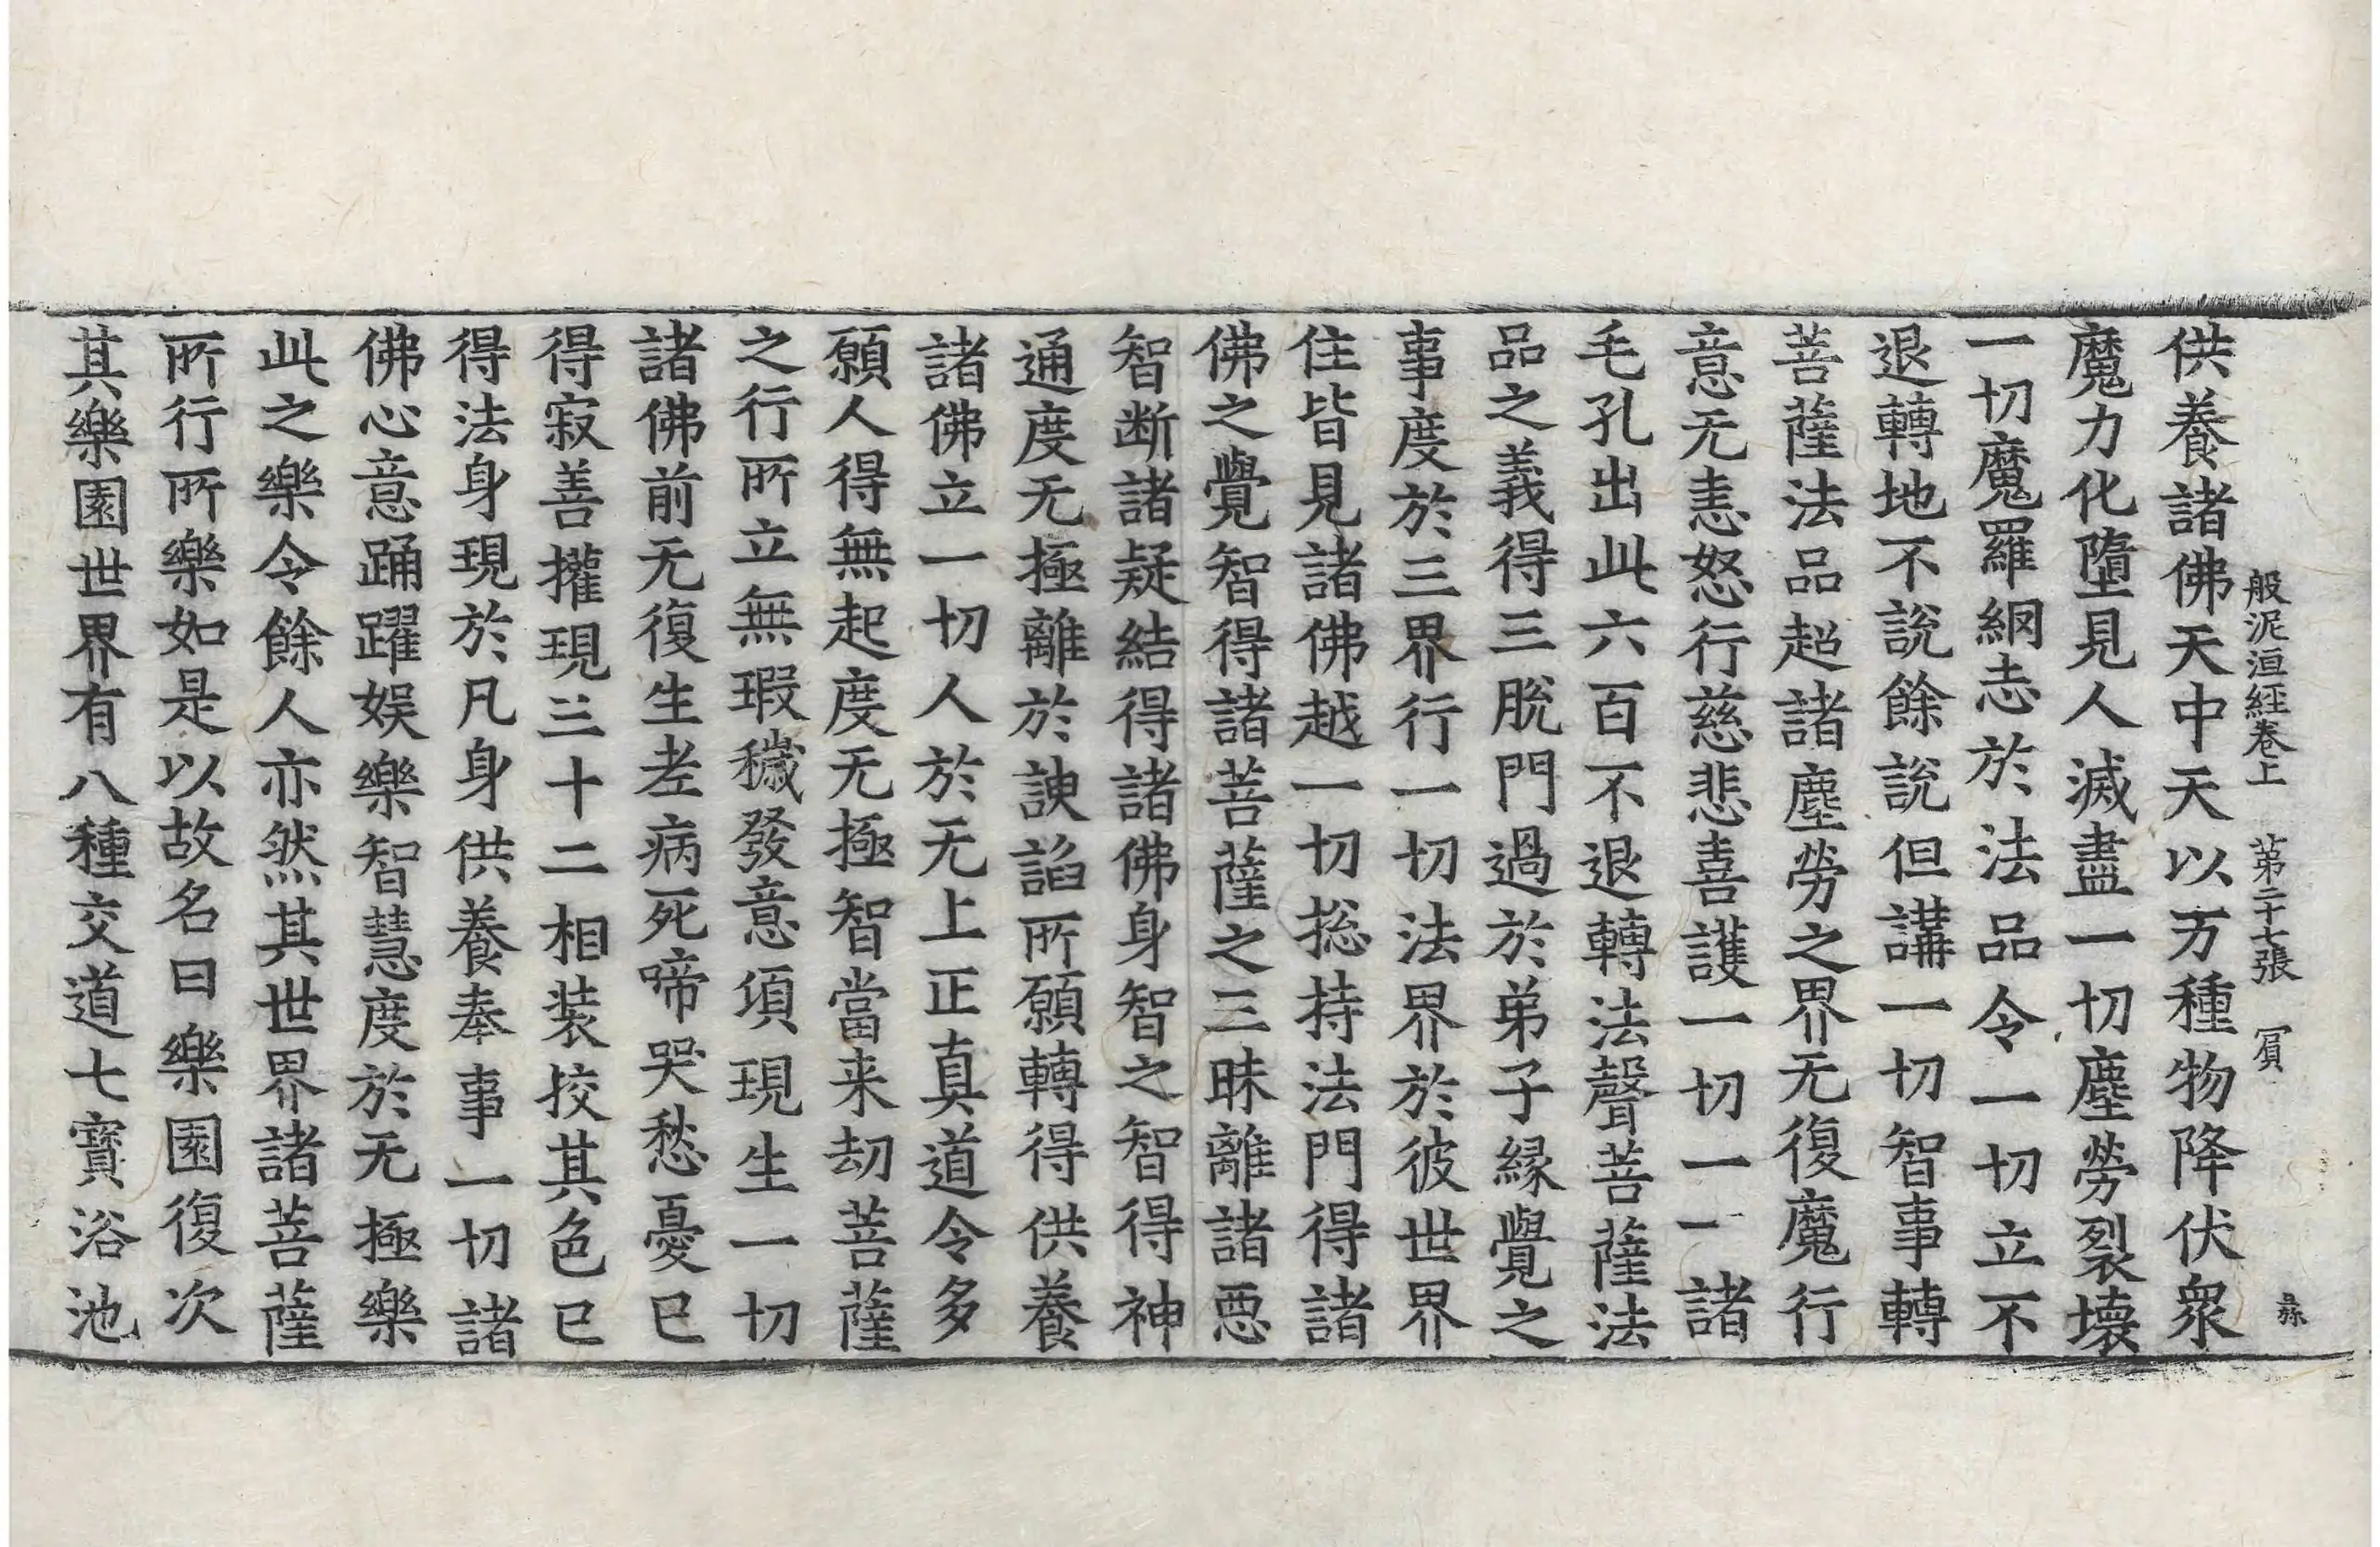 般泥洹經卷上 第二十七張 賔 彛
供養諸佛天中天以万種物降伏衆
魔力化墮見人滅盡一切塵勞裂壞
一切魔羅網志於法品令一切立不
退轉地不說餘說但講一切智事轉
菩薩法品超諸塵勞之界无復魔行
意无恚怒行慈悲喜護一切一一諸
毛孔出此六百不退轉法聲菩薩法
品之義得三脫門過於弟子緣覺之
事度於三界行一切法界於彼世界
住皆見諸佛越一切捴持法門得諸
佛之覺智得諸菩薩之三昧離諸惡
智断諸疑結得諸佛身智之智得神
通度无極離於諛諂所願轉得供養
諸佛立一切人於无上正真道令多
願人得無起度无極智當来劫菩薩
之行所立無瑕穢發意項現生一切
諸佛前无復生老病死啼哭愁憂已
得寂善攉現三十二相装挍其色已
得法身現於凡身供養奉事一切諸
佛心意踊躍娱樂智慧度於无極樂
此之樂令餘人亦然其世界諸菩薩
所行所樂如是以故名曰樂園復次
其樂園世界有八種交道七寶浴池